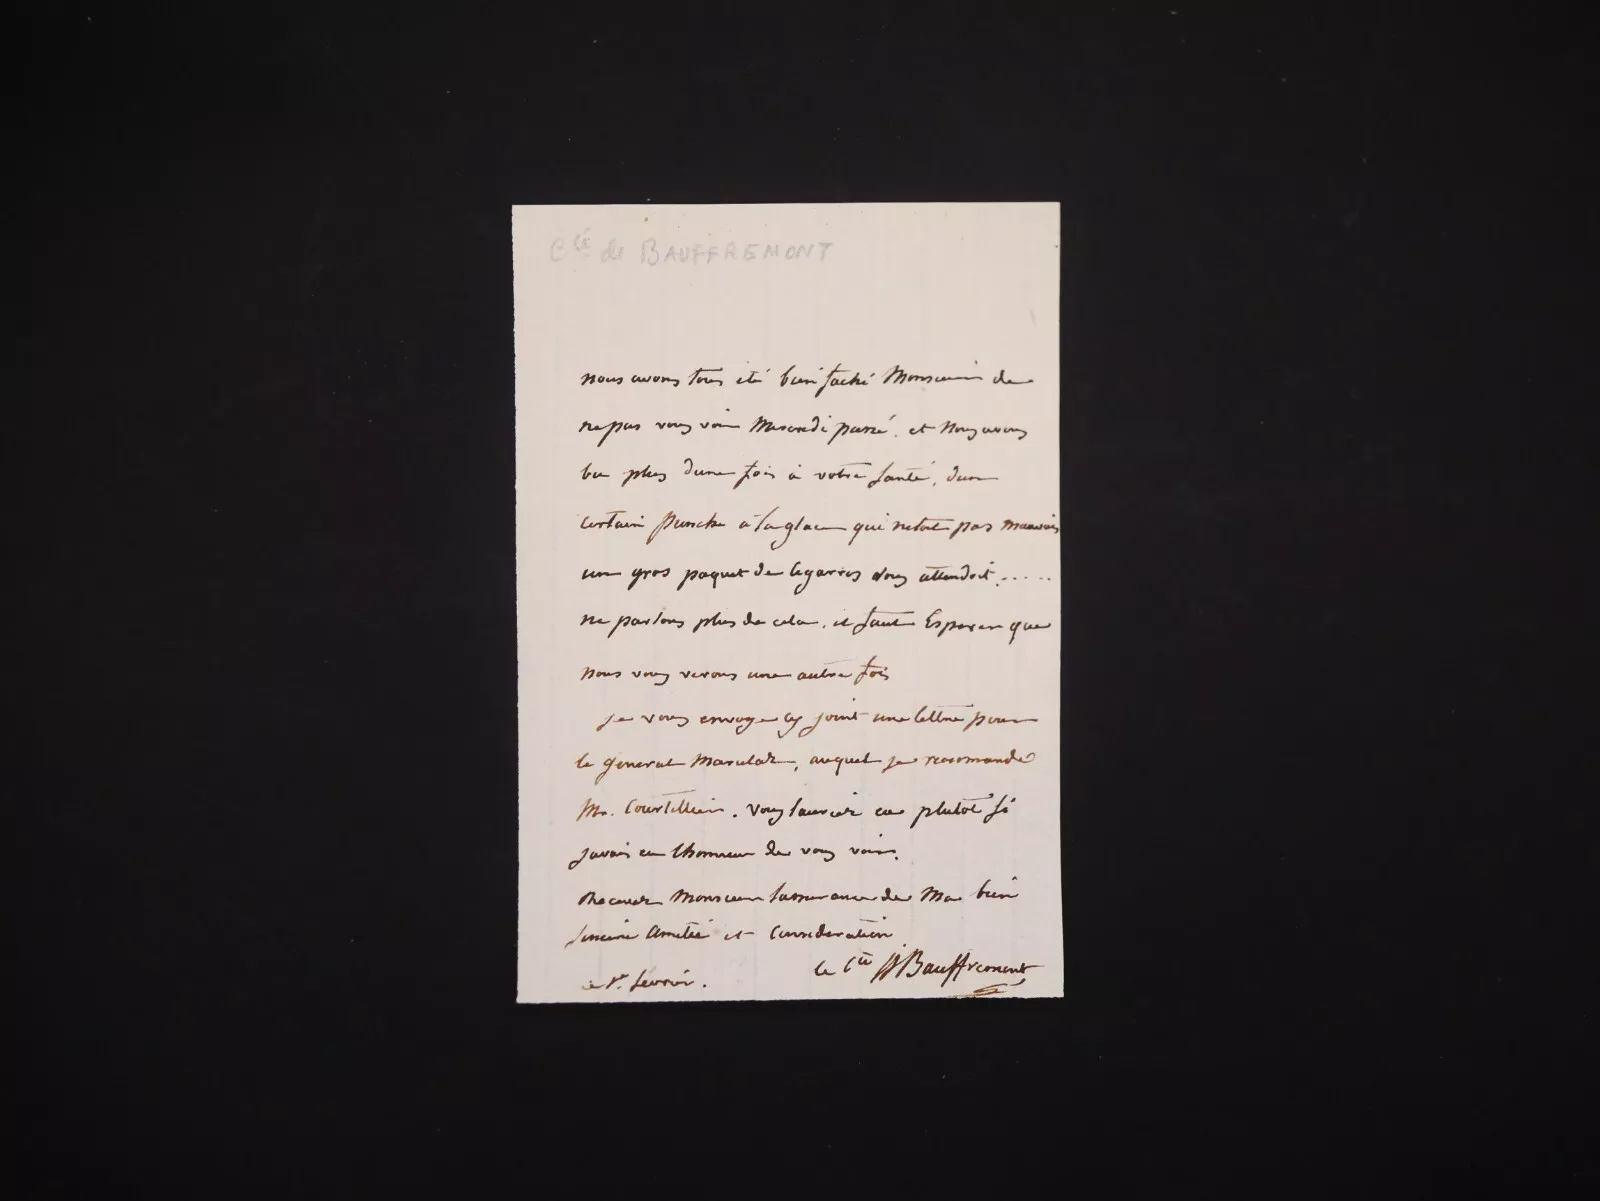 Cte de BAUFFREMONT
nous avons tous été bien faché Monsieur de
ne pas vous voir Mercredi passé. et Nous avons
bu plus dune fois à votre santé, dun
certain punche a la glace qui netoit pas mauvais
un gros paquet de Cegarres vous attendoit .....
ne parlons plus de cela. il faut Esperer que
nous vous verons une autre fois
je vous envoye cy joint une lettre pour
le general Marulaz, auquel je recomande
Mr. Courtillier. vous lauriez eu plutot si
javais eu lhonneur de vous voir.
Recevez Monsieur lassurance de Ma bien
sincere amitié et Consideration
le Cte Bauffremont
ce 1r. fevrier.